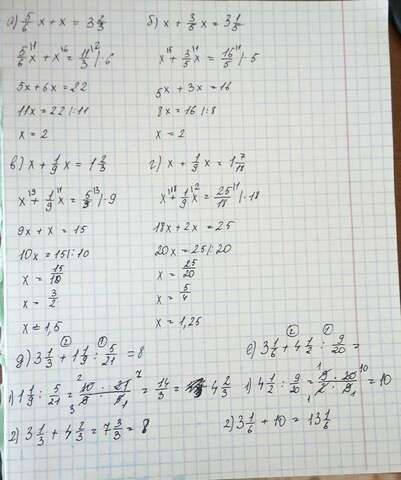 а) 5/6 x + x = 3 2/3
5/6 x + x = 11/3 |·6
5x + 6x = 22
11x = 22 |:11
x = 2
б) x + 3/5 x = 3 1/5
x + 3/5 x = 16/5 |·5
5x + 3x = 16
8x = 16 |:8
x = 2
в) x + 1/9 x = 1 2/3
x + 1/9 x = 5/3 |·9
9x + x = 15
10x = 15 |:10
x = 15/10
x = 3/2
x = 1,5
г) x + 1/9 x = 1 7/18
x + 1/9 x = 25/18 |·18
18x + 2x = 25
20x = 25 |:20
x = 25/20
x = 5/4
x = 1,25
д) 3 1/3 + 1 1/9 : 5/21 = 8
1) 1 1/9 : 5/21 = 10 · 21 / 9 · 5 = 14/3 = 4 2/3
2) 3 1/3 + 4 2/3 = 7 3/3 = 8
е) 3 1/6 + 4 1/2 : 9/20 =
1) 4 1/2 : 9/20 = 9 · 20 / 2 · 9 = 10
2) 3 1/6 + 10 = 13 1/6